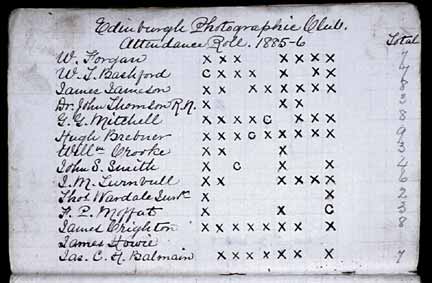 Edinburgh Photographic Club.
Attendance Roll. 1885-6 Total
W. Forgan x x x x x x x 7
W. T. Bashford c x x x x x x
James Jameson x x x x x x x x 8
Dr. John Thomson R.N. x x x 3
G. G. Mitchell x x x x c x x x 8
Hugh Brebner x x x c x x x x x 9
Willm Crooke x x x 3
John S. Smith x c x x 4
I. M. Turnbull x x x x x x 6
Thos. Wardale Junr. x x 2
F. P. Moffat x x c 3
James Crighton x x x x x x x x 8
James Howie
Jas. C. H. Balmain x x x x x x x 7